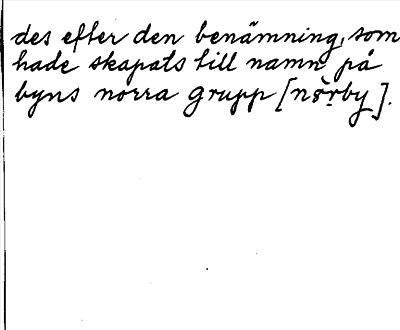 des efter den benämning, som
hade skapats till namn på
byns norra grupp [nö̀r̥by].